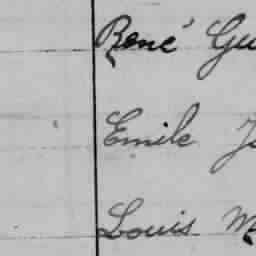 René Gu
Emile Jo
Louis M